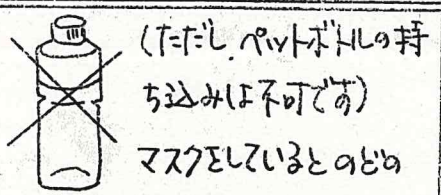 (ただし、ペットボトルの持
ち込みは不可です)
マスクをしているとのどの